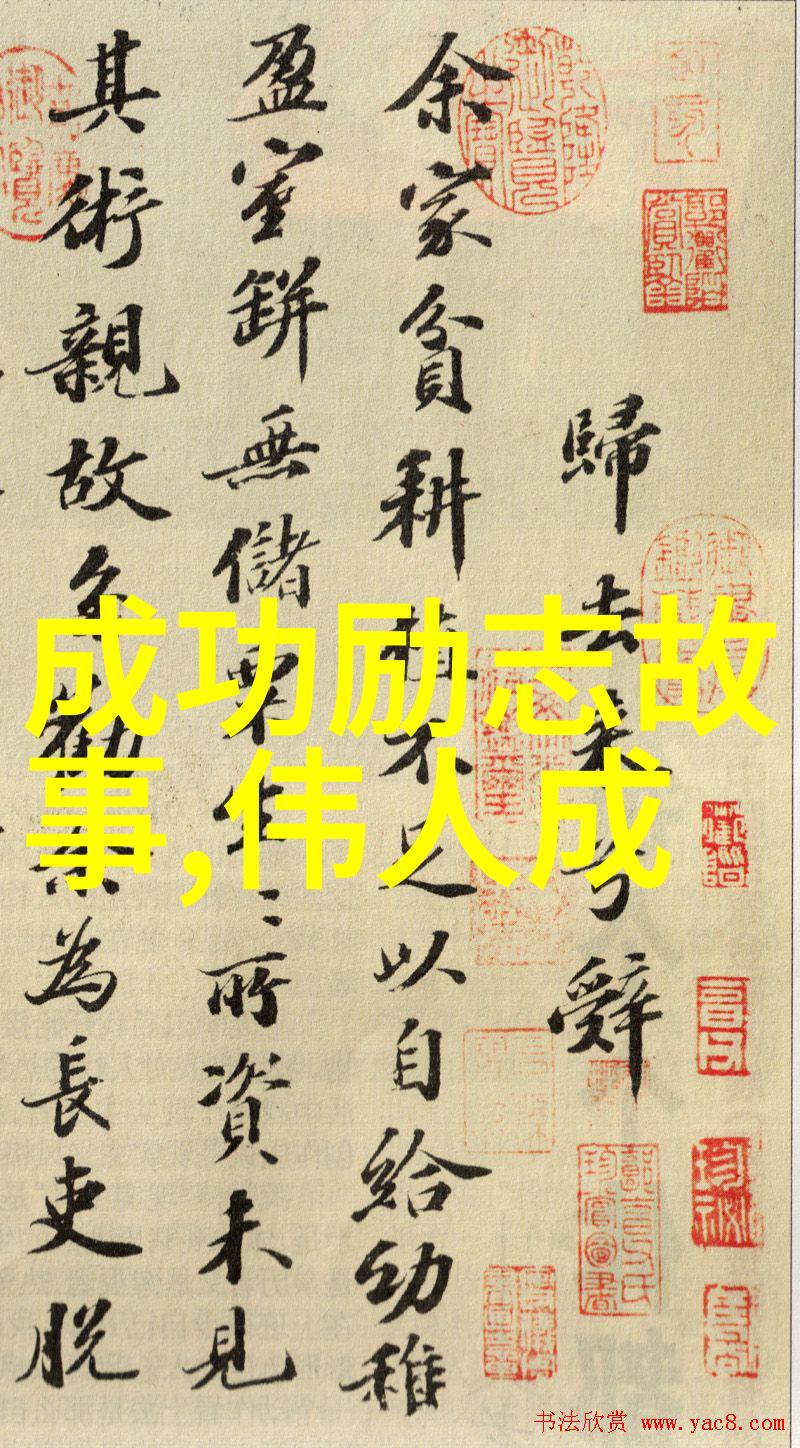 歸去来兮辭
余家貧耕植不足以自給幼稚
盈室缾無儲粟生〻所資未見
其術親故多勸余為長吏脱
成功励志故
事,伟人成
书法欣赏 www.yac8.com